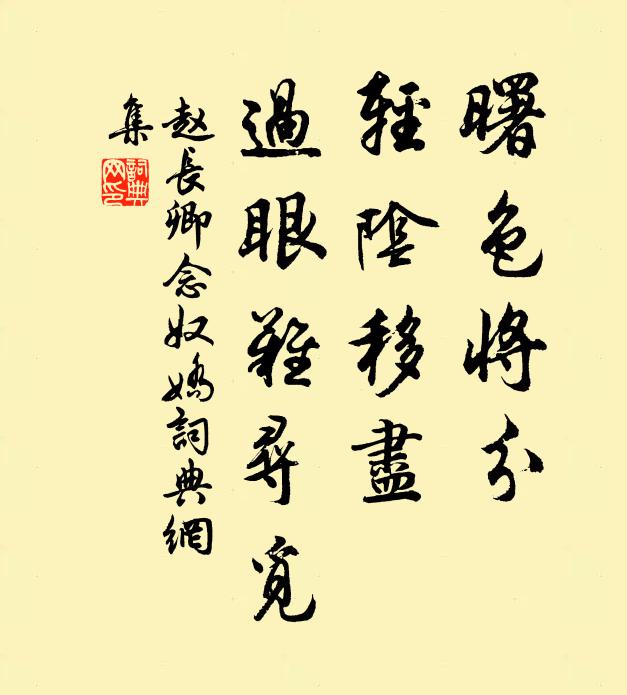 曙色將分
輕陰移盡
過眼難尋覓
赵長卿念奴嬌詞典網
集
詞典網印